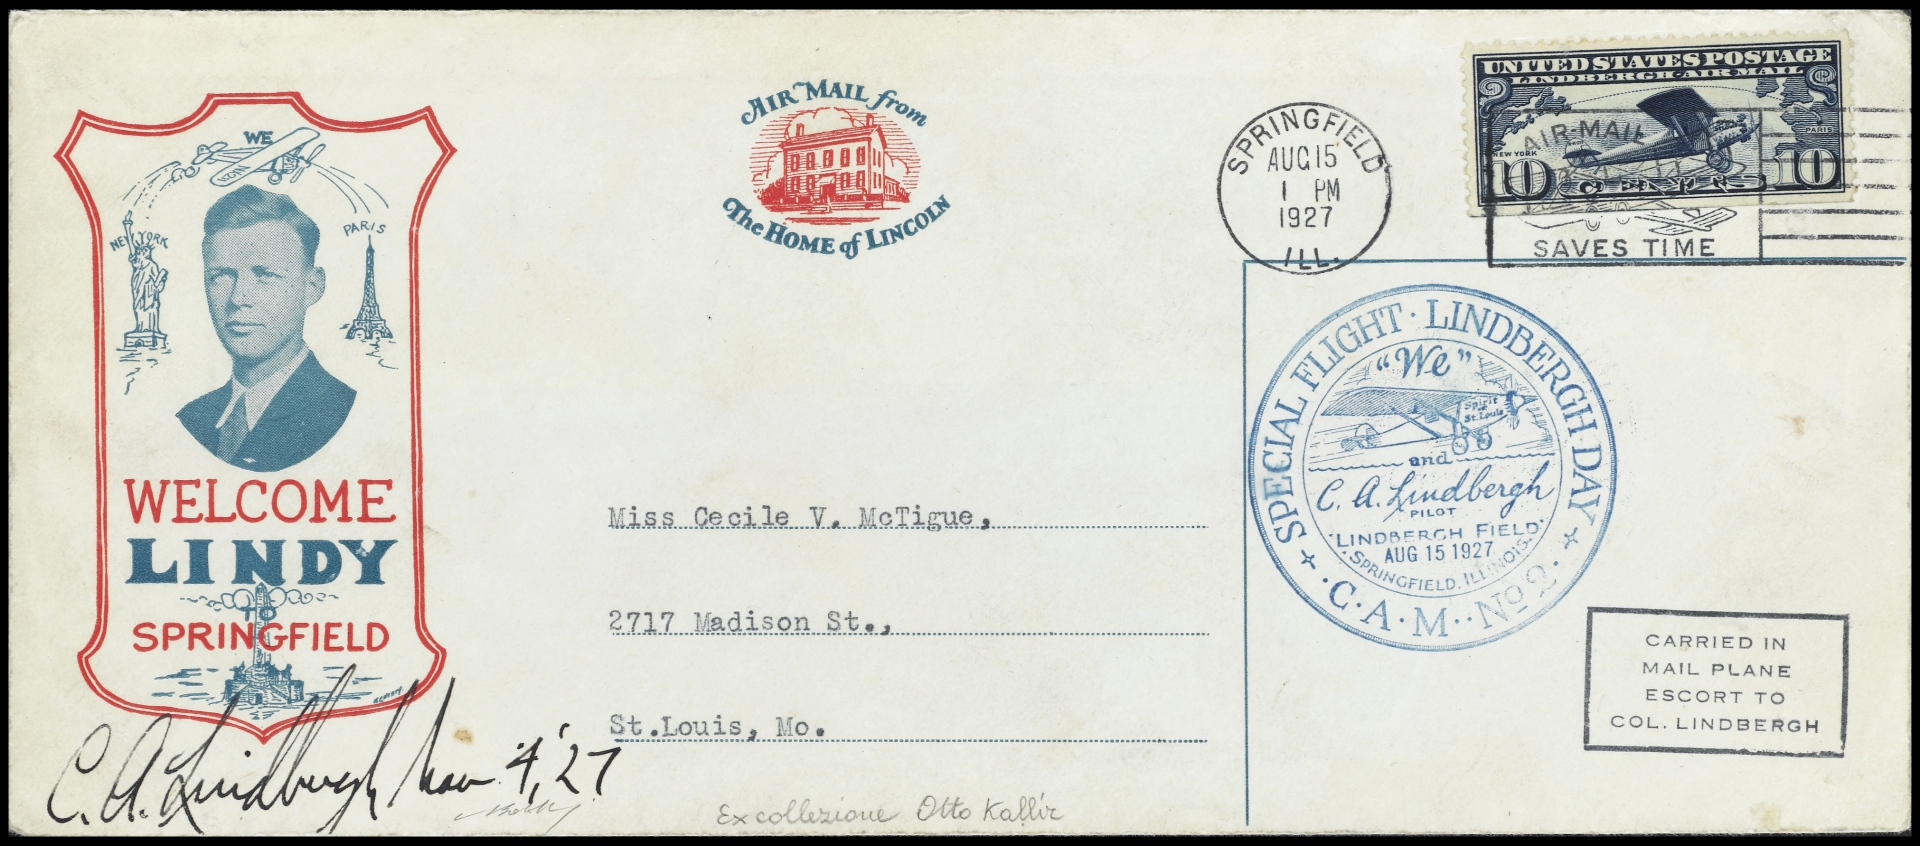 WE
NEW YORK
PARIS
WELCOME
LINDY
TO
SPRINGFIELD
C. A. Lindbergh Nov 4, '27
AIR MAIL from
The HOME of LINCOLN
SPRINGFIELD
AUG 15
1 PM
1927
ILL.
UNITED STATES POSTAGE
LINDBERGH AIR MAIL
NEW YORK
PARIS
10 10
AIR MAIL
SAVES TIME
SPECIAL FLIGHT · LINDBERGH DAY
"We"
Spirit of St. Louis
and
C. A. Lindbergh
PILOT
LINDBERGH FIELD
AUG 15 1927
SPRINGFIELD, ILLINOIS.
· C · A · M · · No 2 ·
Miss Cecile V. McTigue,
2717 Madison St.,
St.Louis, Mo.
CARRIED IN
MAIL PLANE
ESCORT TO
COL. LINDBERGH
Ex collezione Otto Kallir